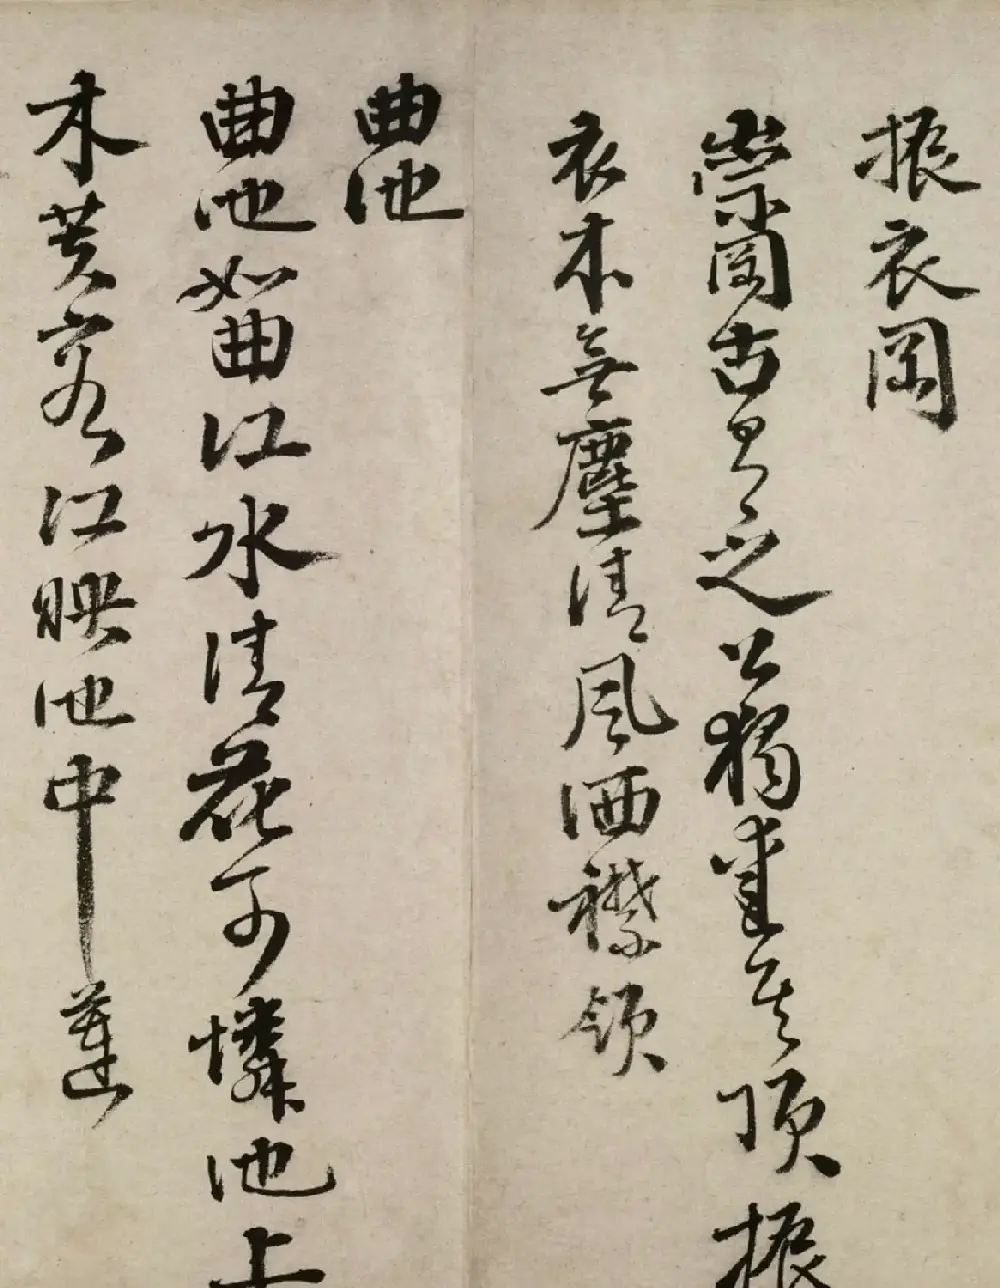 振衣岡
崇岡古有之公獨愛其頂振
衣本無塵清風洒襟領
曲池
曲池如曲江水清花可憐池上
木芙蓉江映池中蓮